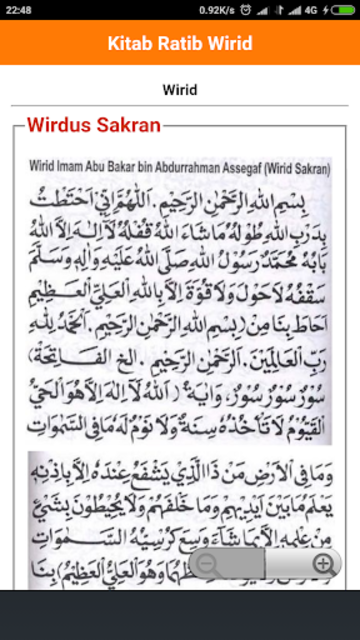 22:48
0.92K/s
4G
Kitab Ratib Wirid
Wirid
Wirdus Sakran
Wirid Imam Abu Bakar bin Abdurrahman Assegaf (Wirid Sakran)
بِسْمِ اللهِ الرَّحْمٰنِ الرَّحِيْمِ. اَللّٰهُمَّ اِنِّي احْتَطْتُ
بِدَرْبِ اللهِ طُوْلُهُ مَا شَاءَ اللهُ قُفْلُهُ لَآ اِلٰهَ اِلَّا اللهُ
بَابُهُ مُحَمَّدٌ رَسُوْلُ اللهِ صَلَّى اللهُ عَلَيْهِ وَاٰلِهِ وَسَلَّمَ
سَقْفُهُ لَاحَوْلَ وَلَا قُوَّةَ اِلَّا بِاللهِ الْعَلِيِّ الْعَظِيْمِ
اَحَاطَ بِنَا مِنْ (بِسْمِ اللهِ الرَّحْمٰنِ الرَّحِيْمِ. اَلْحَمْدُ لِلّٰهِ
رَبِّ الْعَالَمِيْنَ. اَلرَّحْمٰنِ الرَّحِيْمِ. الخ الفَاتِحَةْ)
سُوْرٌ سُوْرٌ سُوْرٌ، وَاٰيَةُ (اَللهُ لَآ اِلٰهَ اِلَّا هُوَ الْحَيُّ
الْقَيُّوْمُ لَا تَأْخُذُهُ سِنَةٌ وَلَا نَوْمٌ لَهُ مَا فِى السَّمٰوَاتِ
وَمَا فِى الْاَرْضِ مَنْ ذَا الَّذِيْ يَشْفَعُ عِنْدَهُ اِلَّا بِاِذْنِهِ
يَعْلَمُ مَا بَيْنَ اَيْدِيْهِمْ وَمَا خَلْفَهُمْ وَلَا يُحِيْطُوْنَ بِشَيْءٍ
مِنْ عِلْمِهِ اِلَّا بِمَا شَاءَ وَسِعَ كُرْسِيُّهُ السَّمٰوَاتِ
وَهُوَ الْعَلِيُّ الْعَظِيْمُ) بِنَا